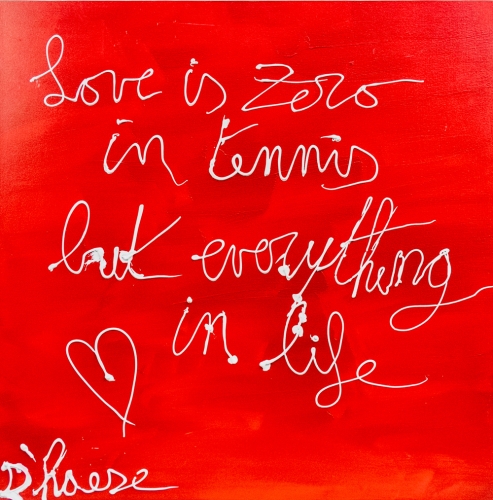 Love is zero
in tennis
but everything
in life
D'haese